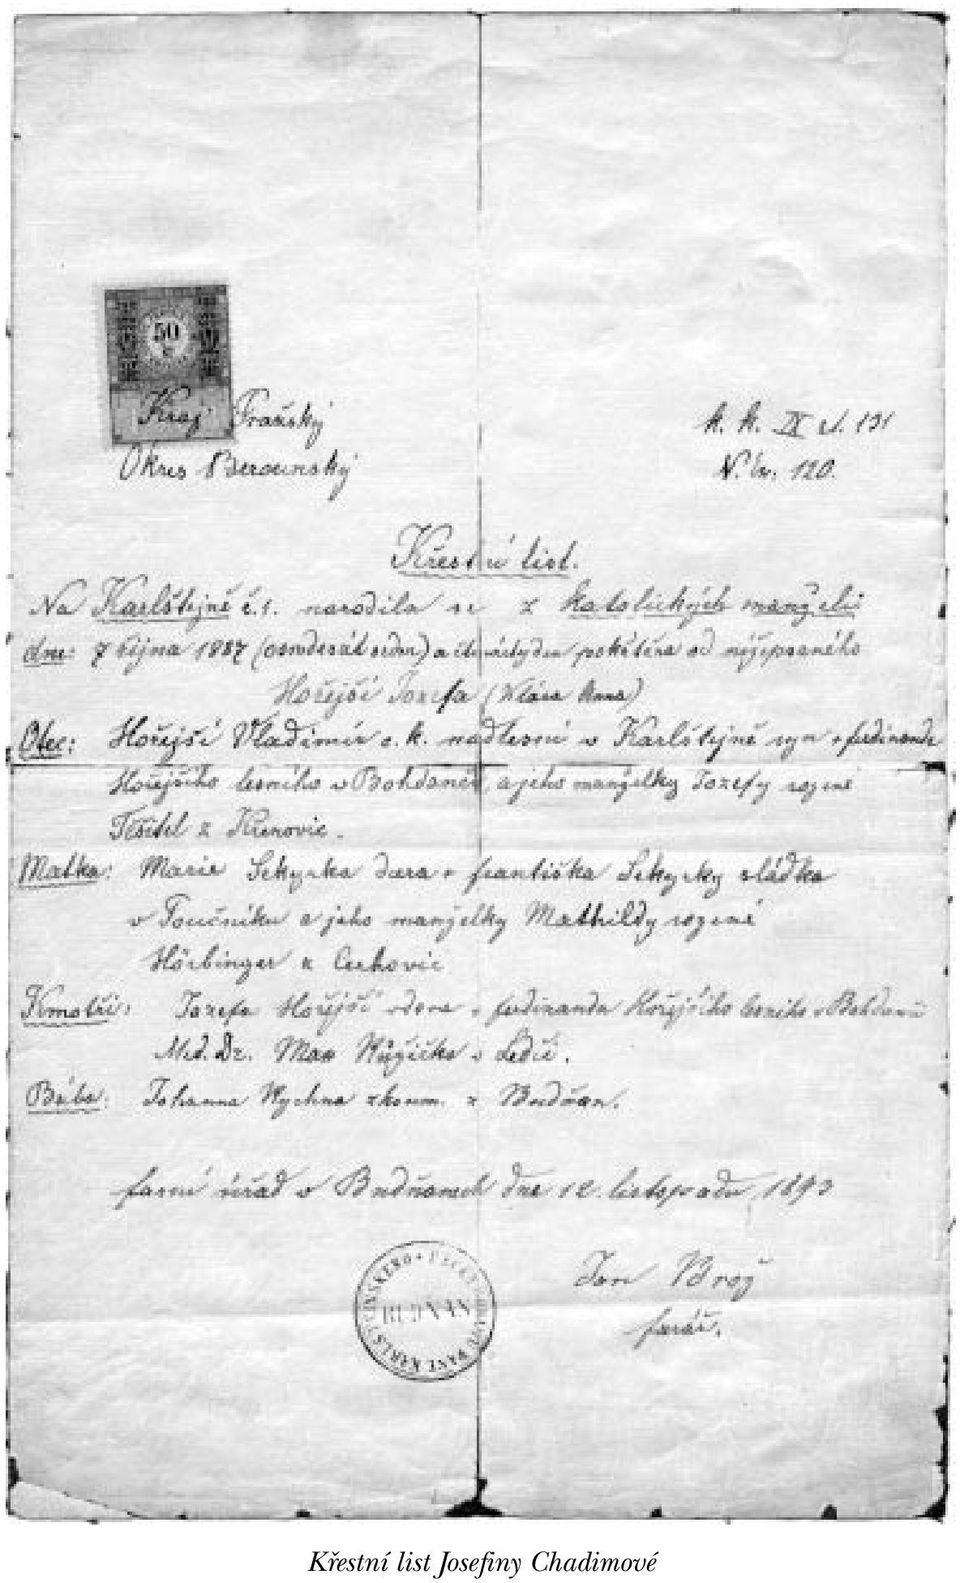 50
Kraj Pražský
k. k. IX d. 131
Okres Berounský
N. 120.
Křestní list.
Na Karlštejně č. 1. narodila se z katolických manželů
dne: 7 října 1887 (osmdesát sedm) a čtrnáctý den pokřtěna od nížepsaného
Hořejší Jozefa (Klára Anna)
Otec: Hořejší Vladimír c. k. nadlesní v Karlštejně syn + ferdinanda
Hořejšího lesního v Bohdanči a jeho manželky Jozefy rozené
Těšitel z Křenovic.
Matka: Marie Sekyrka dcera + františka Sekyrky sládka
v Točníku a jeho manželky Mathildy rozené
Hörbinger z Cerhovic
Kmotři: Jozefa Hořejší vdova + ferdinanda Hořejšího lesního v Bohdanči
Med. Dr. Max Růžička v Ledči.
Bába: Johanna Rychna zkoum. z Budňan.
farní úřad v Budňanech dne 12. listopadu 1893
BUDŇAN
Jan Brož
farář.
Křestní list Josefiny Chadimové